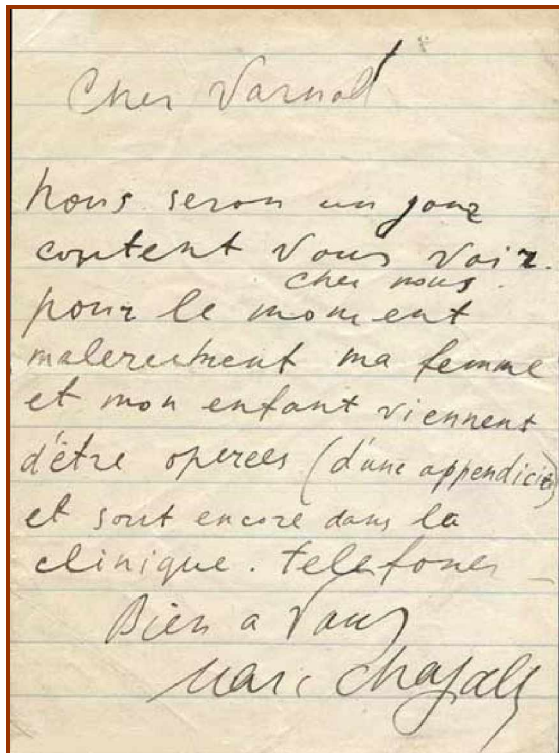 Cher Varnot
Nous seron un jour
content vous voir.
cher nous.
pour le moment
malereusment ma femme
et mon enfant viennent
d'être operees (d'une appendicite)
et sont encore dans la
clinique. telefones
Bien a vous
Marc Chagall